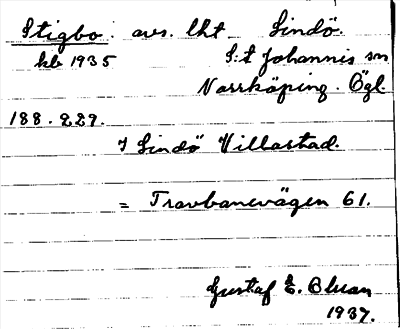 Stigbo. avs. lht Lindö.
kb 1935 S:t Johannis sn
Norrköping. Ögl.
188.229.
I Lindö Villastad.
= Travbanevägen 61.
Gustaf E. Bluan
1937.